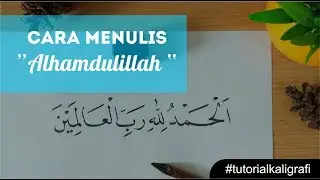 CARA MENULIS
”Alhamdulillah “
اَلْحَمْدُ لِلّٰهِ رَبِّ الْعَالَمِيْنَ
#tutorialkaligrafi